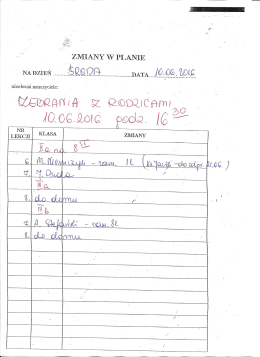 ZMIANY W PLANIE
NA DZIEŃ ŚRODA DATA 10.06.2016
nieobecni nauczyciele:
ZEBRANIA Z RODZICAMI
10.06.2016 godz. 16 30
NR LEKCJI KLASA ZMIANY
na 8
6. M. Niemczyk - zam.
7. J. Duda
8. do domu
III b
7. A. Stefański - zam.
8. do domu